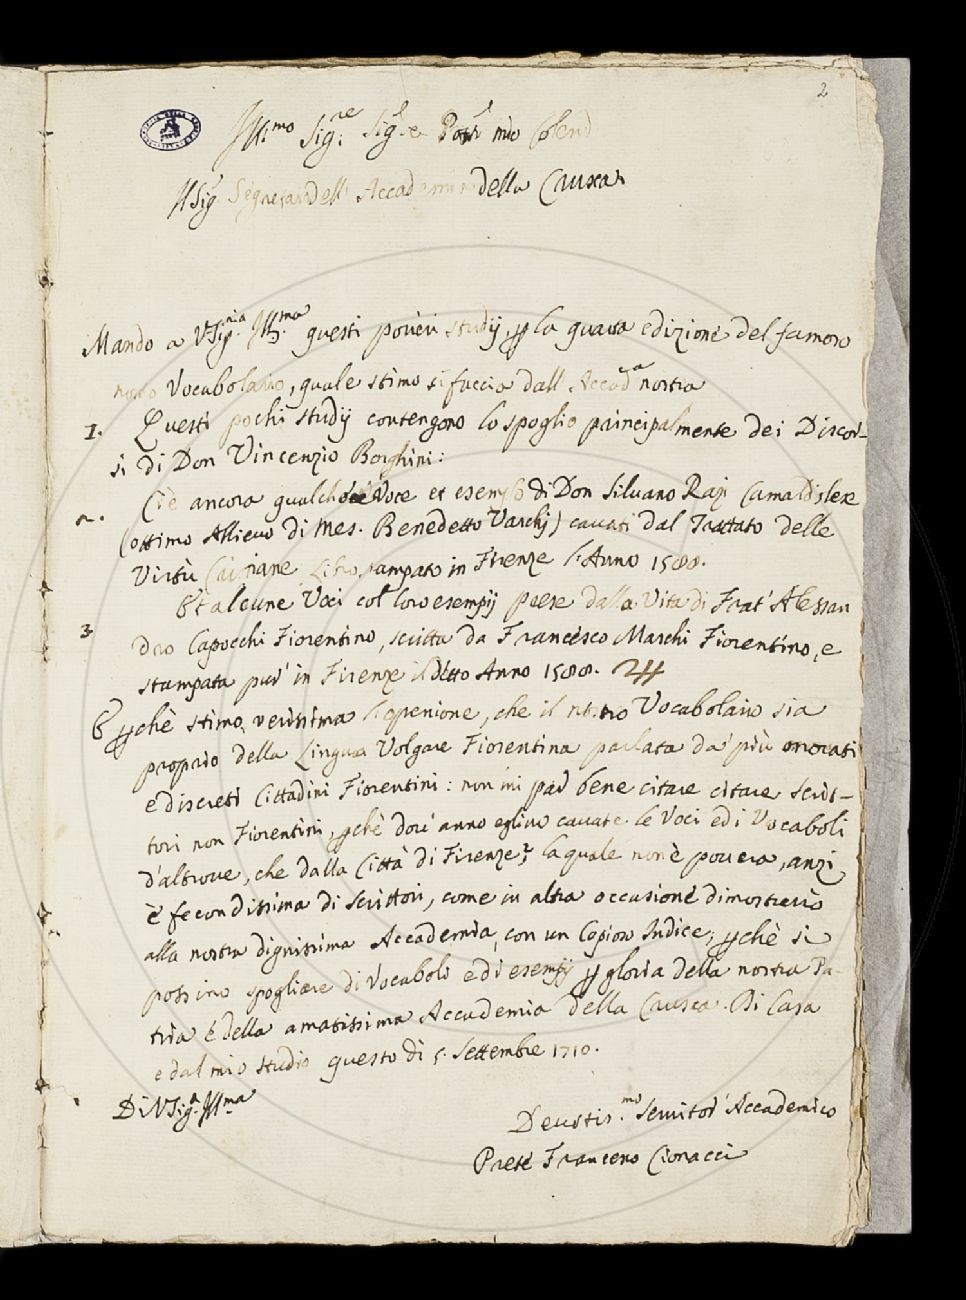 2
Ill:mo Sig:re Sig:re Pa͠ꝛ mio Colend
Il Sig. Segretar dell Accademia della Crusca
Mando a V Sig.nia Ill.ma questi poveri studij, ꝑ la quarta edizione del famoso
nostro Vocabolario, quale stimo si faccia dall Accad.a nostra
1. Questi pochi studij contengono lo spoglio principalmente dei Discor-
si di Don Vincenzio Borghini:
2. C'è ancora qualche Voce et esempio di Don Silvano Razi Camaldolese
(ottimo Allievo di Mes. Benedetto Varchj) cavati dal Trattato delle
Virtù Cristiane Libro stampato in Firenze l'Anno 1588.
3. Et alcune Voci col loro esempij prese dalla Vita di Frat' Alessan
dro Capocchi Fiorentino, scritta da Francesco Marchi Fiorentino, e
stampata pur' in Firenze il detto Anno 1588. 24
E ꝑchè stimo verissima l'openione, che il nostro Vocabolario sia
proprio della Lingua Volgare Fiorentina parlata da' più onorati
e discreti Cittadini Fiorentini: non mi par bene citare citare Scrit-
tori non Fiorentini, ꝑchè dov' anno eglino cavate le Voci ed i Vocaboli
d'altrove, che dalla Città di Firenze? la quale non è povera, anzi
è fecondissima di Scrittori, come in altra occasione dimostrerò
alla nostra dignissima Accademia, con un Copioso Indice; ꝑchè si
possino spogliare di Vocaboli e di esempij ꝑ gloria della nostra Pa-
tria e della amatissima Accademia della Crusca. Di Casa
e dal mio studio questo dì 5. Settembre 1710.
Di V Sig.a Ill.ma
Devotis.mo Servitor' Accademico
Prete Francesco Cionacci